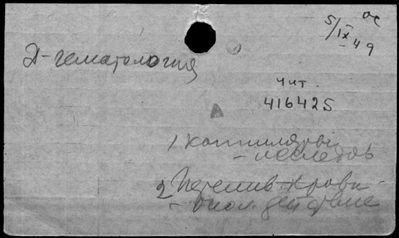 5/IX-49
Д-гематология
Чит.
416425
1 капилляры
- исследов
2 Перелив. крови -
- биол. действие